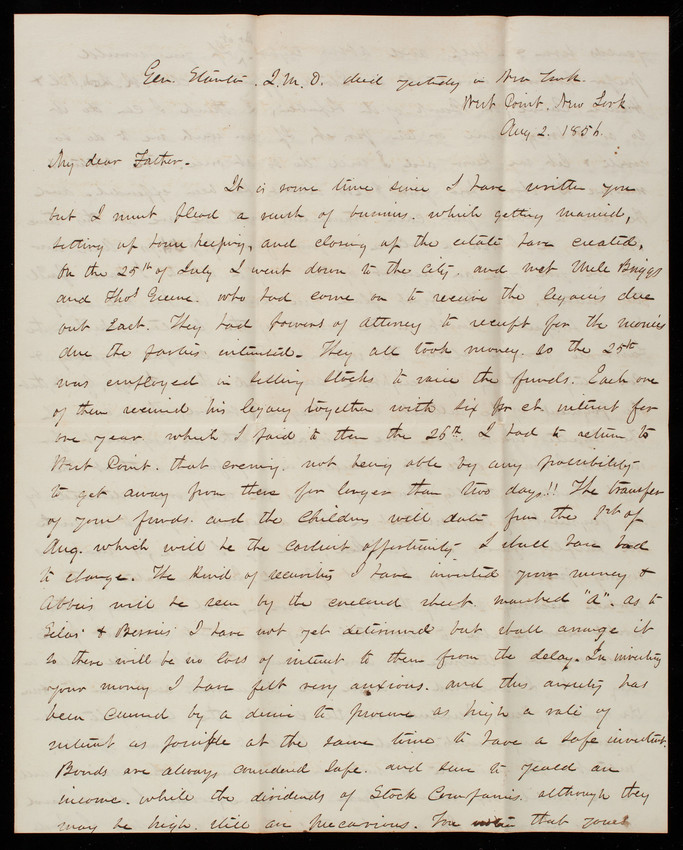 Gen. Stanton. Q.M.D. died yesterday in New York.
West Point. New York
Aug 2. 1856.
My dear Father.
It is some time since I have written you
but I must plead a rush of business. which getting married,
setting up house keeping, and closing up the estate have created.
On the 25th of July I went down to the City. and met Mr Briggs
and Thos Greene. who had come on to receive the legacies due
out East. They had powers of attorney to receipt for the monies
due the parties interested. They all took money. so the 25th
was employed in selling stocks to raise the funds. Each one
of them received his legacy together with six pr ct. interest for
one year which I paid to them the 26th. I had to return to
West Point. that evening. not being able by any possibility
to get away from there for longer than two days!! The transfer
of your funds. and the Childrens will date from the 1st of
Aug. which will be the earliest opportunity I shall have had
to change. The kind of securities I have invested your money &
Abbies will be seen by the enclosed sheet marked "a". as to
& Bessies I have not yet determined but shall arrange it
so there will be no loss of interest to them from the delay. In investing
your money I have felt very anxious. and this anxiety has
been caused by a desire to procure as high a rate of
interest as possible at the same time to have a safe investment.
Bonds are always considered safe. and sure to yeald an
income. while the dividends of Stock Companies. although they
may be high. still are precarious. For that your